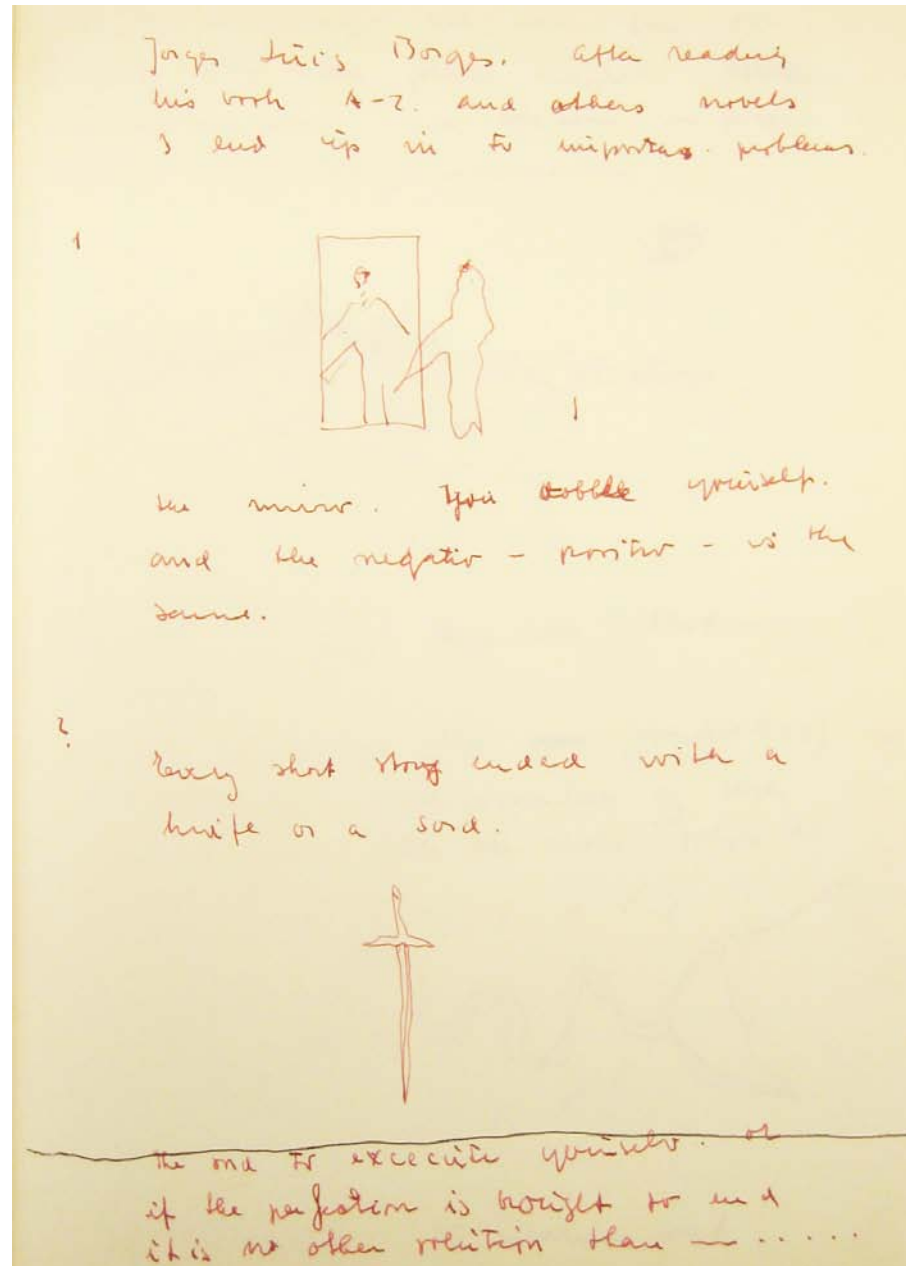 Jorges Luis Borges. after reading
his book A-Z. and others novels
I end up in to importas. problems.
1
1
the miror. You dobble yourself.
and the negativ - positiv - is the
same.
2.
Every short story ended with a
knife or a sord.
the end to excecute yourselv. or
if the perfection is brought to end
it is no other solution than — .....